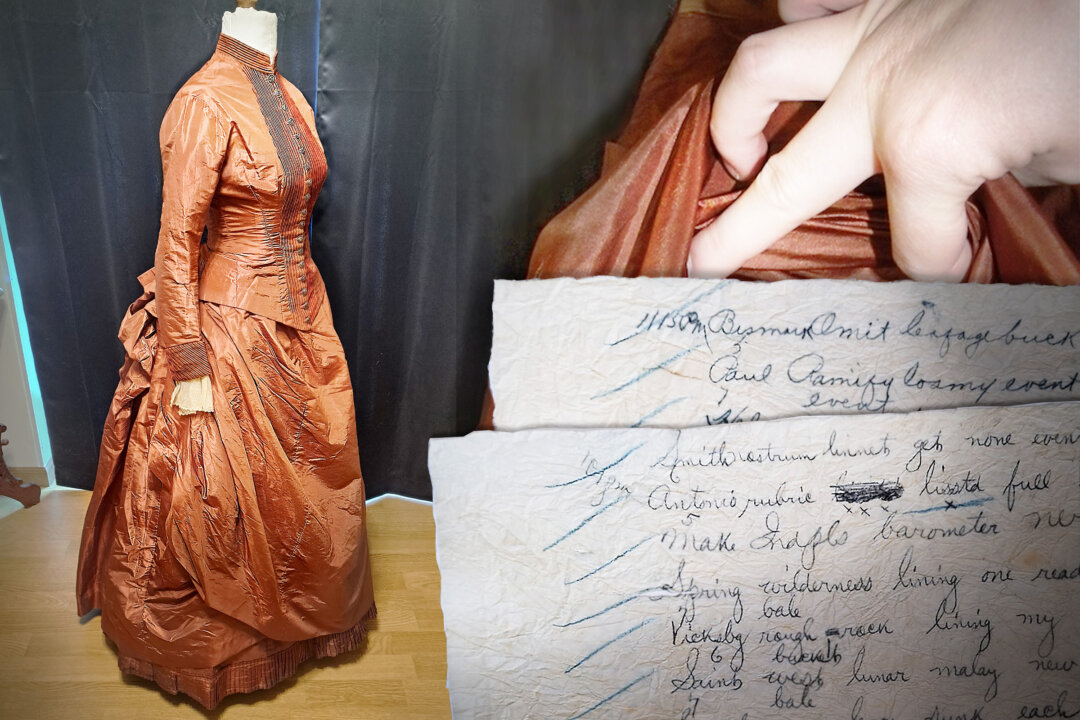 1113 Pm Bismark Omit leafage buck
Paul Ramify loamy event
event
Smith nostrum linnet get none even
Antonio rubric lisstd full
Make Indpls barometer
Spring wilderness lining one read
bale
Vicksbg rough-rock lining my
6 bucket
Saint west lunar malay new
7 bale
each